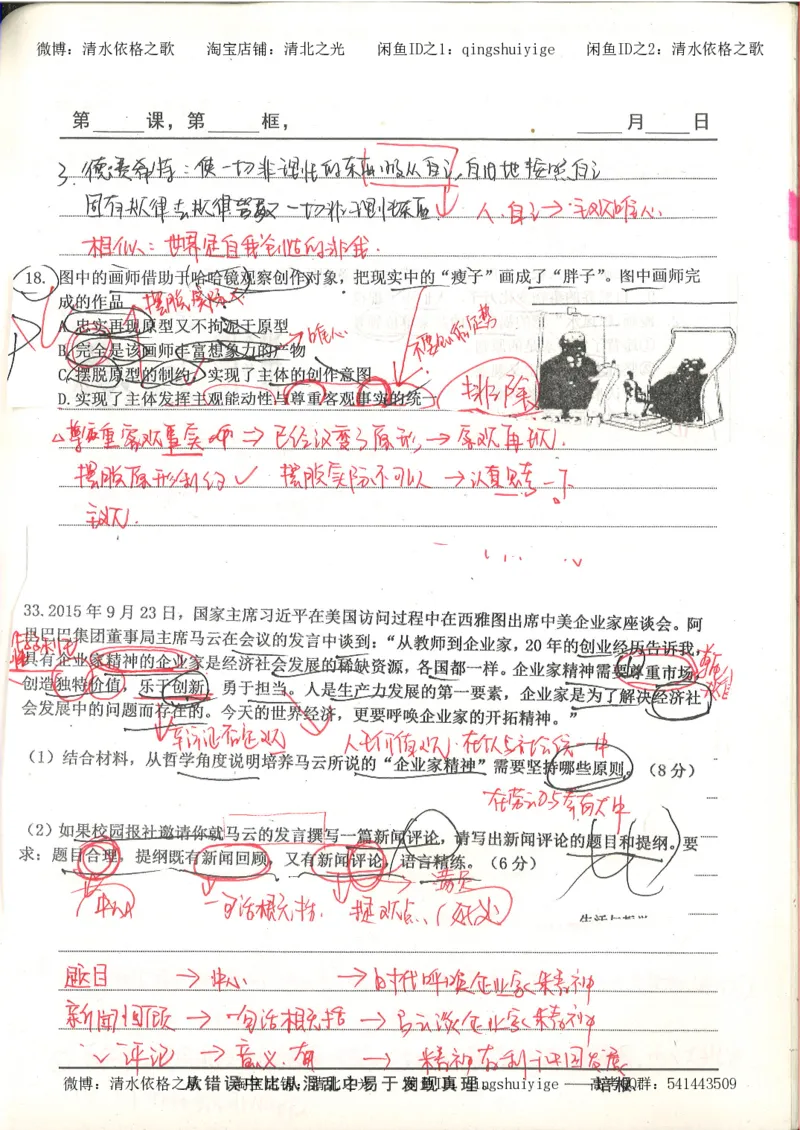 微博：清水依格之歌 淘宝店铺：清北之光 闲鱼ID之1：qingshuiyige 闲鱼ID之2：清水依格之歌
第 课，第 框， 月 日
3. 德费希特：使一切非理性的东西服从自己，自由地按照自己
固有规律去 一切非理性东西 人．自己→主观唯心
相似：世界是自我创造的非我．
18．图中的画师借助于哈哈镜观察创作对象，把现实中的“瘦子”画成了“胖子”。图中画师完
成的作品 摆脱实际×
A．忠实再现原型又不拘泥于原型
B．完全是该画师丰富想象力的产物 唯心
C．摆脱原型的制约，实现了主体的创作意图
D．实现了主体发挥主观能动性与尊重客观事实的统一 排除
尊重客观事实 ⇒ 已经改变了原形 → 客观再现．
摆脱原形制约 ✓ 摆脱实际不可以 → 认真思考一下
33.2015 年 9 月 23 日，国家主席习近平在美国访问过程中在西雅图出席中美企业家座谈会。阿
里巴巴集团董事局主席马云在会议的发言中谈到：“从教师到企业家，20 年的创业经历告诉我，
具有企业家精神的企业家是经济社会发展的稀缺资源，各国都一样。企业家精神需要尊重市场，
创造独特价值，乐于创新，勇于担当。人是生产力发展的第一要素，企业家是为了解决经济社
会发展中的问题而存在的。今天的世界经济，更要呼唤企业家的开拓精神。”
辩证否定观 人生价值观 在个人与社会统一中
（1）结合材料，从哲学角度说明培养马云所说的“企业家精神”需要坚持哪些原则。（8 分）
在劳动与奉献中
（2）如果校园报社邀请你就马云的发言撰写一篇新闻评论，请写出新闻评论的题目和提纲。要
求：题目合理，提纲既有新闻回顾，又有新闻评论，语言精练。（6 分）
一句话概括． 提观点．
题目 → 中心 → 时代呼唤企业家精神
新闻回顾 → 一句话概括 → 马云谈企业家精神
评论 → 意义． → 精神有利于国发展
微博：清水依格之歌 从错误中比从混乱中易于发现真理。 ——培根 QQ群：541443509